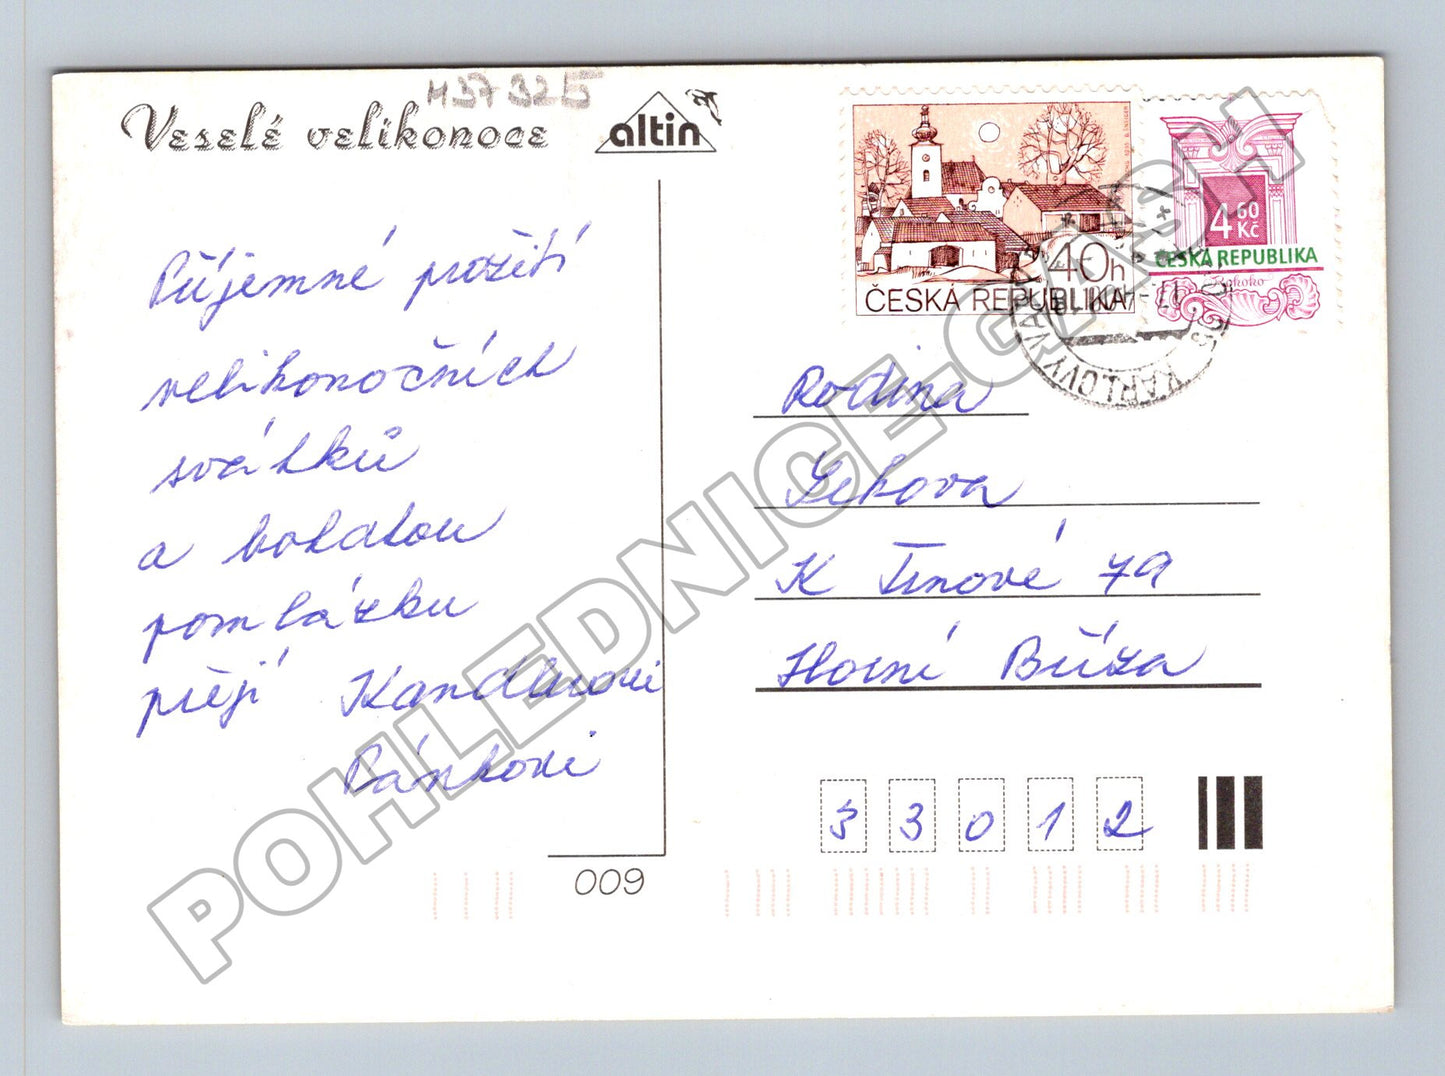 Veselé velikonoce
H37325
altin
Příjemné prožití
velikonočních
svátků
a bohatou
pomlázku
přejí Kandlerovi
Pánkovi
009
40h
ČESKÁ REPUBLIKA
4 60 Kč
ČESKÁ REPUBLIKA
Rokoko
KARLOVY VARY
Rodina
Gekova
K Tinové 79
Horní Bříza
33012
POHLEDNICE-GARSH